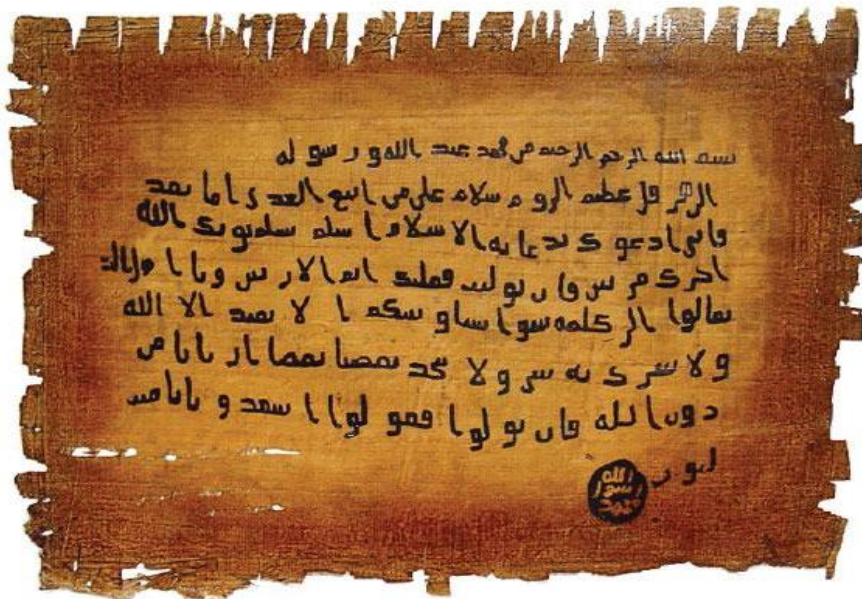 بسم الله الرحمن الرحيم من محمد عبد الله ورسوله
الى هرقل عظيم الروم سلام على من اتبع الهدى اما بعد
فانى ادعوك بدعاية الاسلام اسلم تسلم يوتك الله
اجرك مرتين فان توليت فعليك اثم الاريسين ويا اهل الكتاب
تعالوا الى كلمة سوا بيننا وبينكم ا لا نعبد الا الله
ولا نشرك به شيا ولا يتخذ بعضنا بعضا اربابا من
دون الله فان تولوا فقولوا اشهدوا بانا مسـ
لمون
الله
رسول
محمد